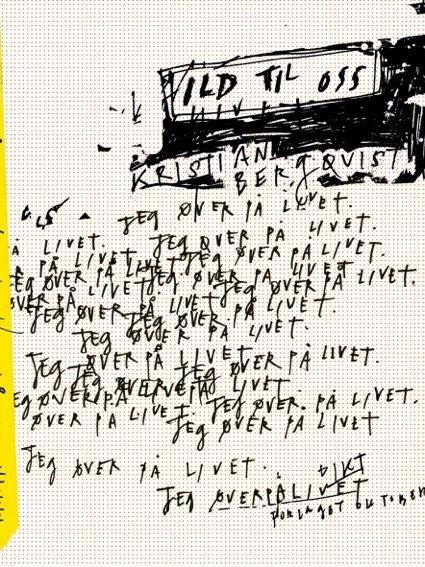 ILD TIL OSS
KRISTIAN
BERGQVIST
JEG ØVER PÅ LIVET.
LIVET. JEG ØVER PÅ LIVET.
PÅ LIVET JEG ØVER PÅ LIVET.
JEG ØVER PÅ LIVET JEG ØVER PÅ LIVET. LIVET.
ØVER PÅ LIVET JEG ØVER PÅ
JEG ØVER PÅ LIVET JEG ØVER PÅ LIVET.
JEG ØVER PÅ LIVET.
JEG ØVER PÅ LIVET. JEG ØVER PÅ LIVET.
JEG ØVER PÅ LIVET.
JEG ØVER PÅ LIVET. JEG ØVER PÅ LIVET.
ØVER PÅ LIVET. JEG ØVER PÅ LIVET
JEG ØVER PÅ LIVET.
DIKT
JEG ØVER PÅ LIVET
FORLAGET OKTOBER